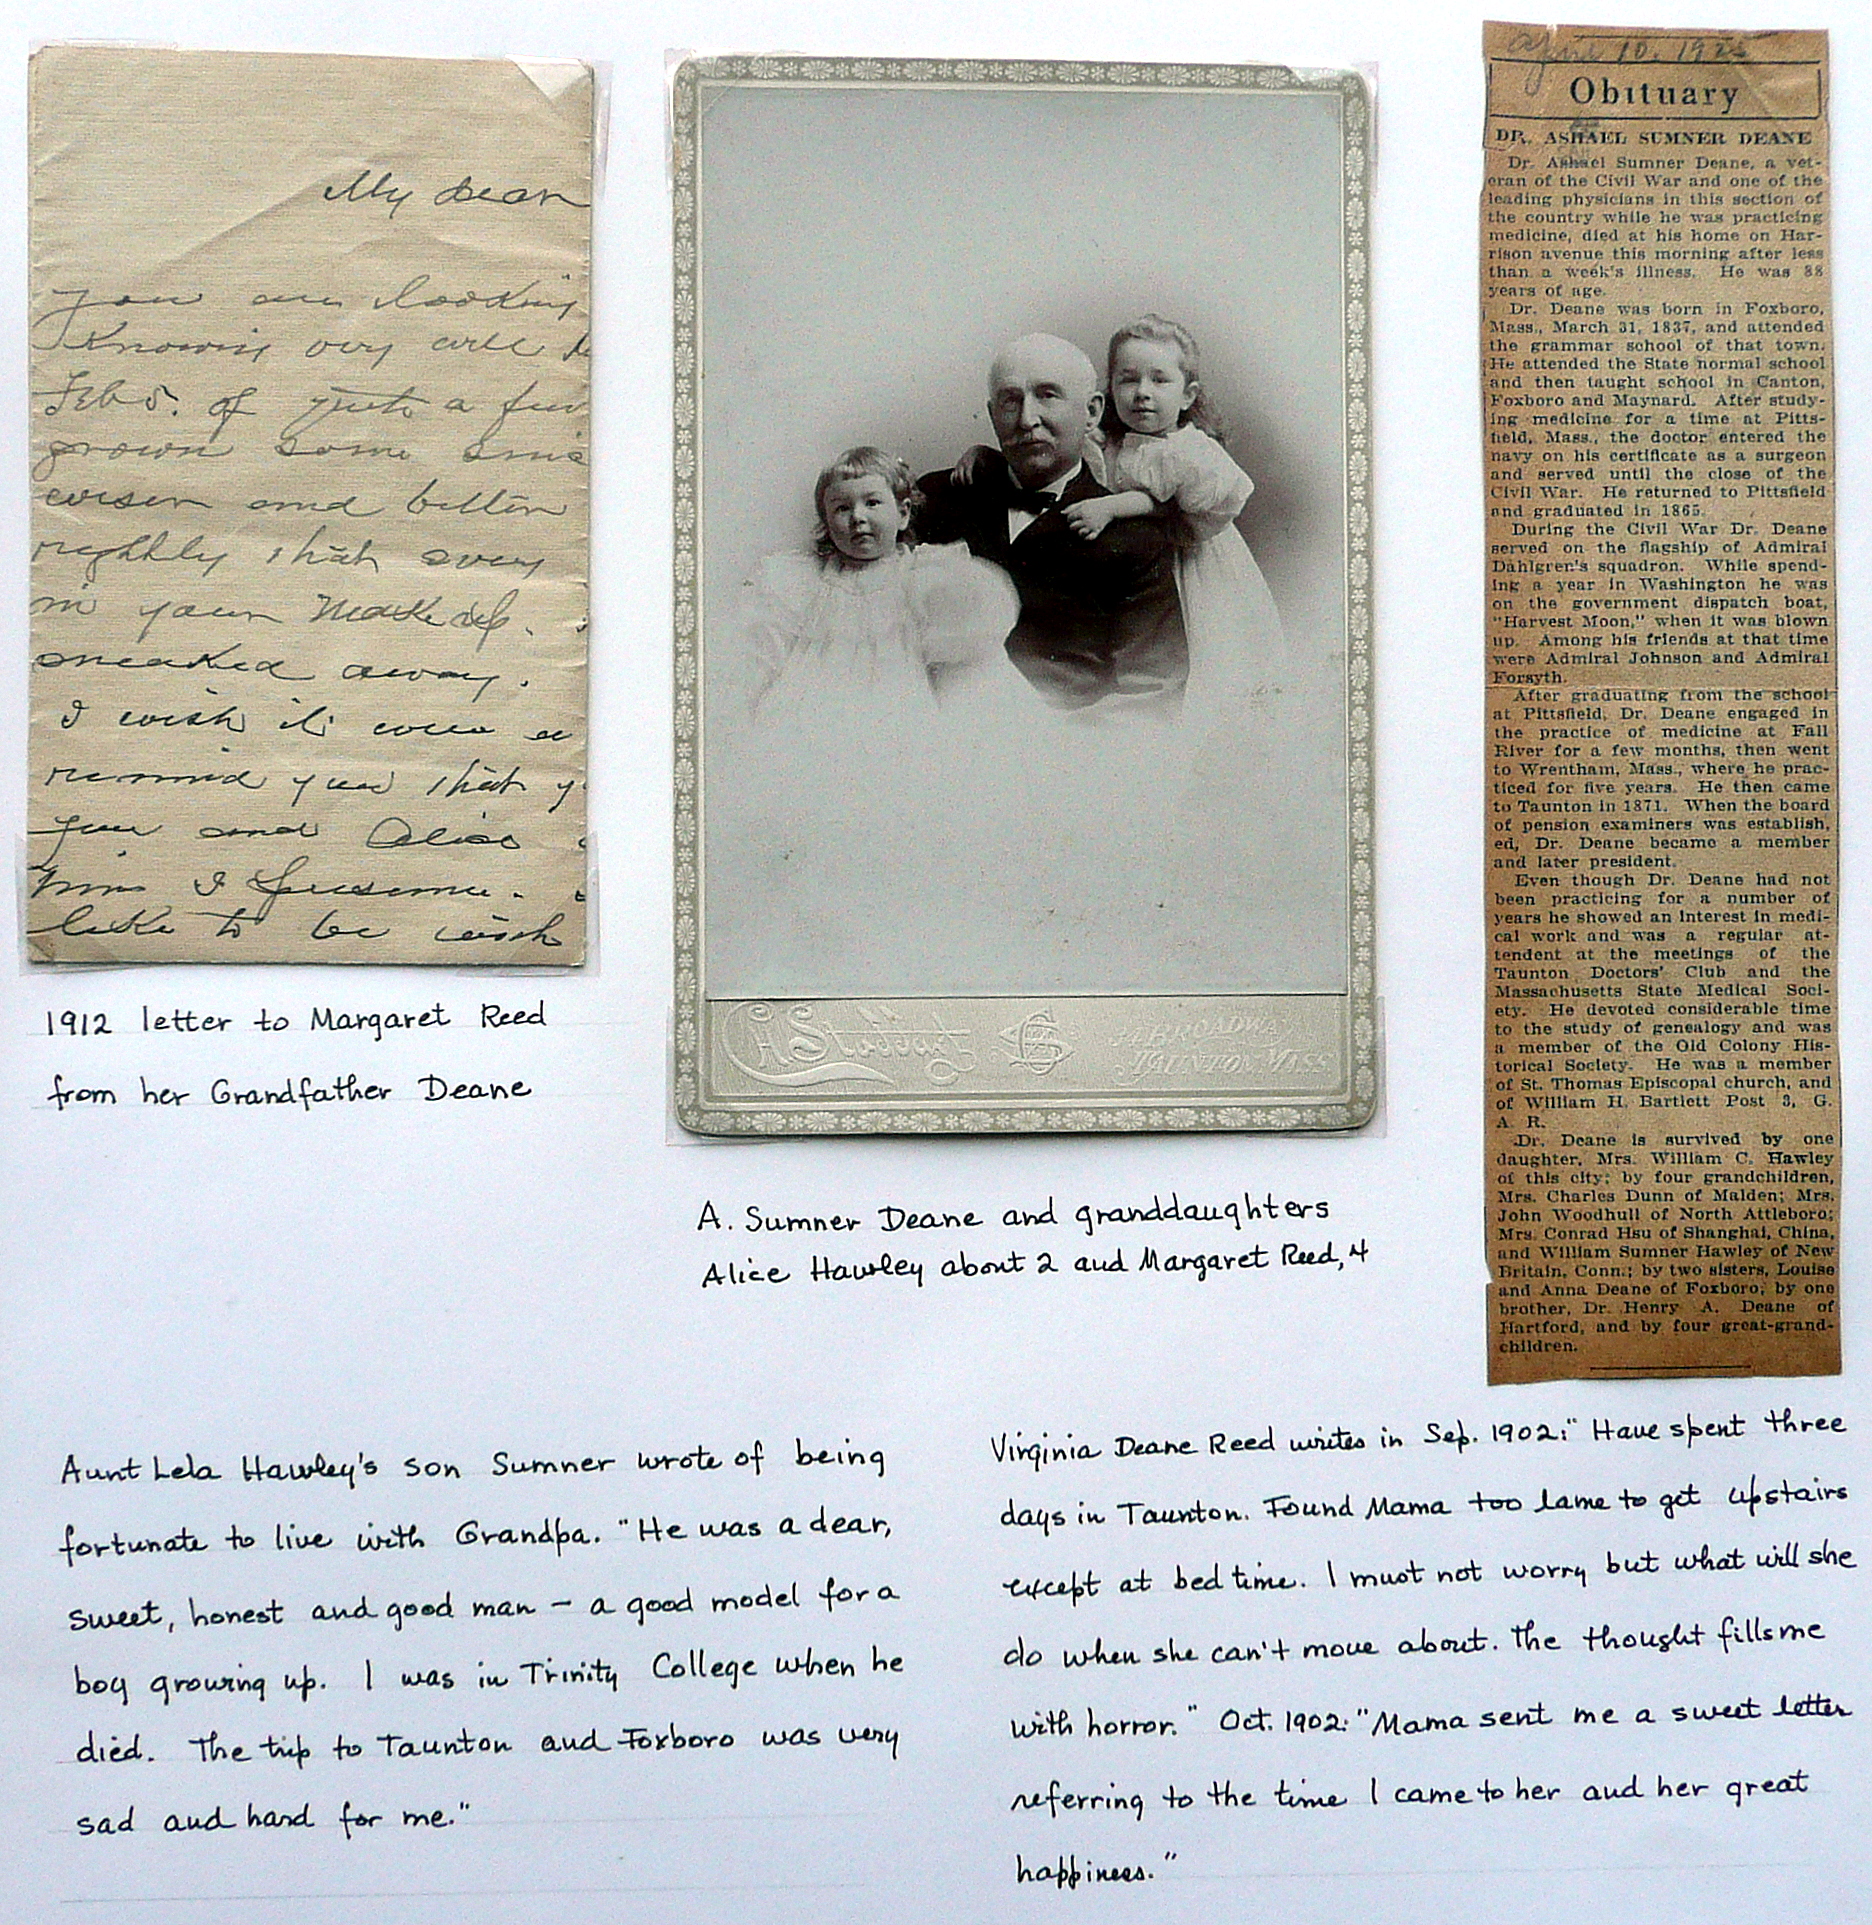 My dear
you are looking
Knowing very well
Feb 5. of just a few
grown some
wiser and better
rightly that every
in your make up.
sneaked away.
I wish it were
remind you that
you and Alice
him I presume.
like to be wish
1912 letter to Margaret Reed
from her Grandfather Deane
C.H. Stoddart
BROADWAY
TAUNTON, MASS.
A. Sumner Deane and granddaughters
Alice Hawley about 2 and Margaret Reed, 4
April 10, 1925
Obituary
DR. ASHAEL SUMNER DEANE
Dr. Ashael Sumner Deane, a vet-
eran of the Civil War and one of the
leading physicians in this section of
the country while he was practicing
medicine, died at his home on Har-
rison avenue this morning after less
than a week's illness. He was 88
years of age.
Dr. Deane was born in Foxboro,
Mass., March 31, 1837, and attended
the grammar school of that town.
He attended the State normal school
and then taught school in Canton,
Foxboro and Maynard. After study-
ing medicine for a time at Pitts-
field, Mass., the doctor entered the
navy on his certificate as a surgeon
and served until the close of the
Civil War. He returned to Pittsfield
and graduated in 1865.
During the Civil War Dr. Deane
served on the flagship of Admiral
Dahlgren's squadron. While spend-
ing a year in Washington he was
on the government dispatch boat,
"Harvest Moon," when it was blown
up. Among his friends at that time
were Admiral Johnson and Admiral
Forsyth.
After graduating from the school
at Pittsfield, Dr. Deane engaged in
the practice of medicine at Fall
River for a few months, then went
to Wrentham, Mass., where he prac-
ticed for five years. He then came
to Taunton in 1871. When the board
of pension examiners was establish,
ed, Dr. Deane became a member
and later president.
Even though Dr. Deane had not
been practicing for a number of
years he showed an interest in medi-
cal work and was a regular at-
tendent at the meetings of the
Taunton Doctors' Club and the
Massachusetts State Medical Soci-
ety. He devoted considerable time
to the study of genealogy and was
a member of the Old Colony His-
torical Society. He was a member
of St. Thomas Episcopal church, and
of William H. Bartlett Post 3, G.
A. R.
Dr. Deane is survived by one
daughter, Mrs. William C. Hawley
of this city; by four grandchildren,
Mrs. Charles Dunn of Malden; Mrs.
John Woodhull of North Attleboro;
Mrs. Conrad Hsu of Shanghai, China,
and William Sumner Hawley of New
Britain, Conn.; by two sisters, Louise
and Anna Deane of Foxboro; by one
brother, Dr. Henry A. Deane of
Hartford, and by four great-grand-
children.
Aunt Lela Hawley's son Sumner wrote of being
fortunate to live with Grandpa. "He was a dear,
sweet, honest and good man – a good model for a
boy growing up. I was in Trinity College when he
died. The trip to Taunton and Foxboro was very
sad and hard for me."
Virginia Deane Reed writes in Sep. 1902: "Have spent three
days in Taunton. Found Mama too lame to get upstairs
except at bed time. I must not worry but what will she
do when she can't move about. The thought fills me
with horror." Oct. 1902: "Mama sent me a sweet letter
referring to the time I came to her and her great
happiness."